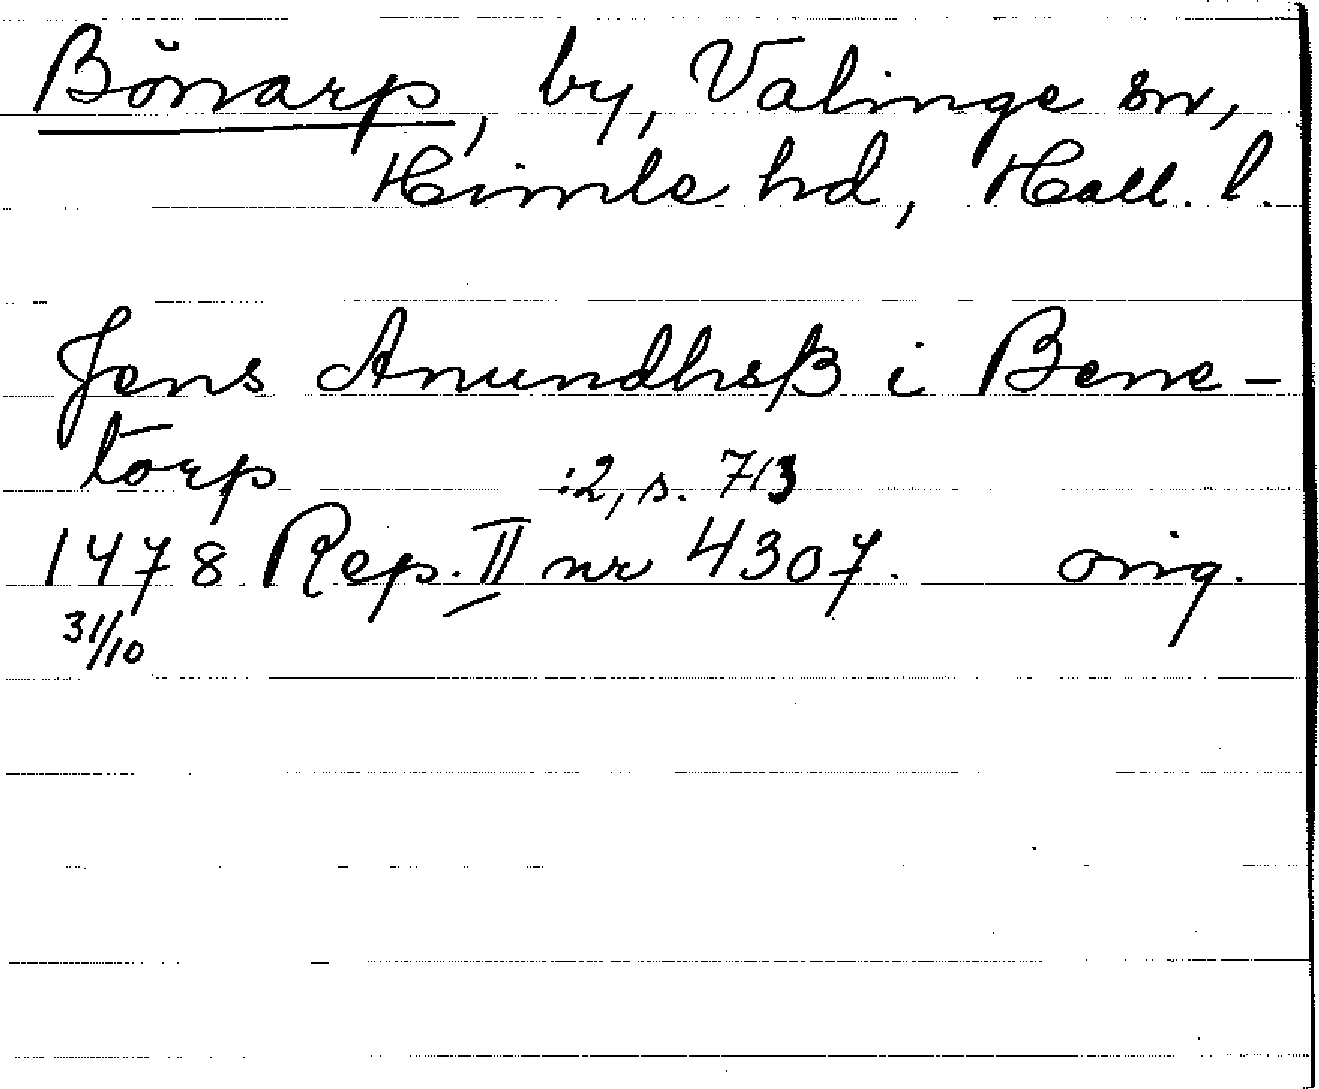 Bönarp, by, Valinge sn,
Himle hd, Hall. l.
Jens Anundhsß i Bene-
torp :2, s. 713
1478 Rep. II nr 4307. orig.
31/10